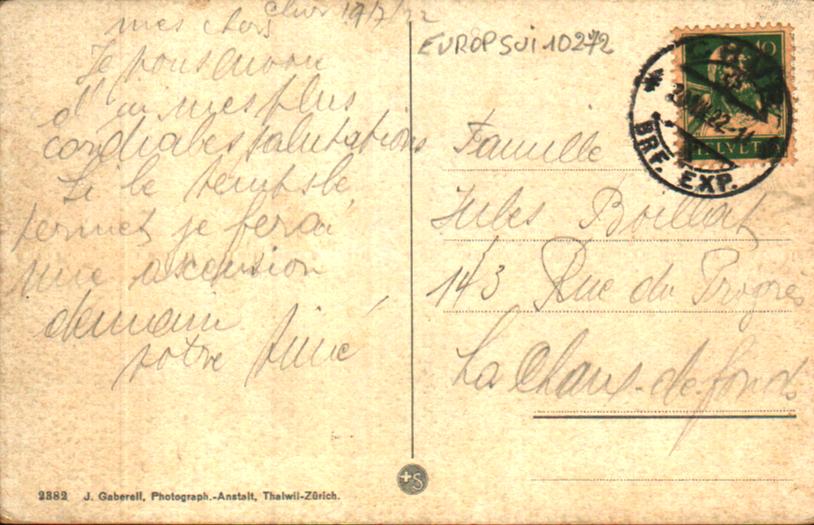 Chur 19/7/22
mes chers
Je vous envoie
d'ici mes plus
cordiales salutations
Si le temps le
permet je ferai
une ascension
demain
votre
EUROPSUI10272
Famille
Jules Boillat
143 Rue du Progrès
La Chaux-de-fonds
10
HELVETIA
BRF. EXP.
2382 J. Gaberell, Photograph.-Anstalt, Thalwil-Zürich.
+S